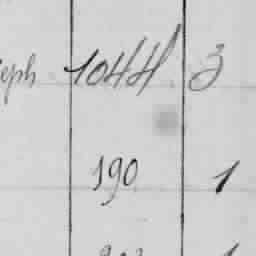 eph 1044 3
190 1